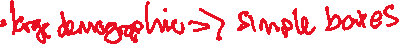 • large demographic => simple boxes